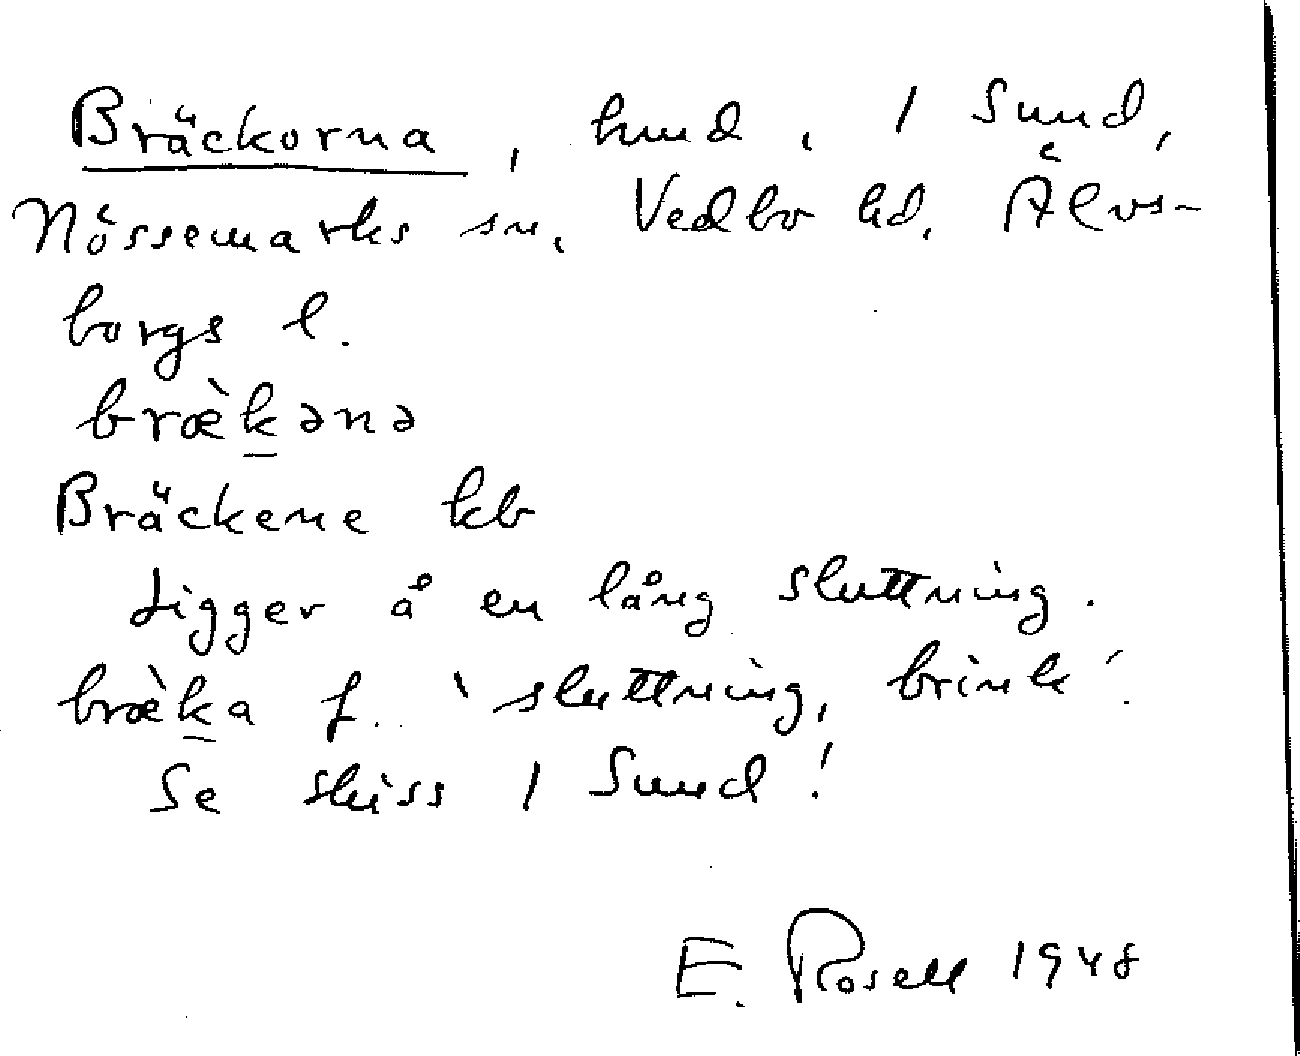 Bräckorna, hmd, 1 Sund,
Nössemarks sn. Vedbo hd. Älvs-
borgs l.
bræ̀kənə
Bräckene kb
Ligger å en lång sluttning.
bræ̀ka f. 'sluttning, brink'.
Se skiss 1 Sund!
E. Rosell 1948